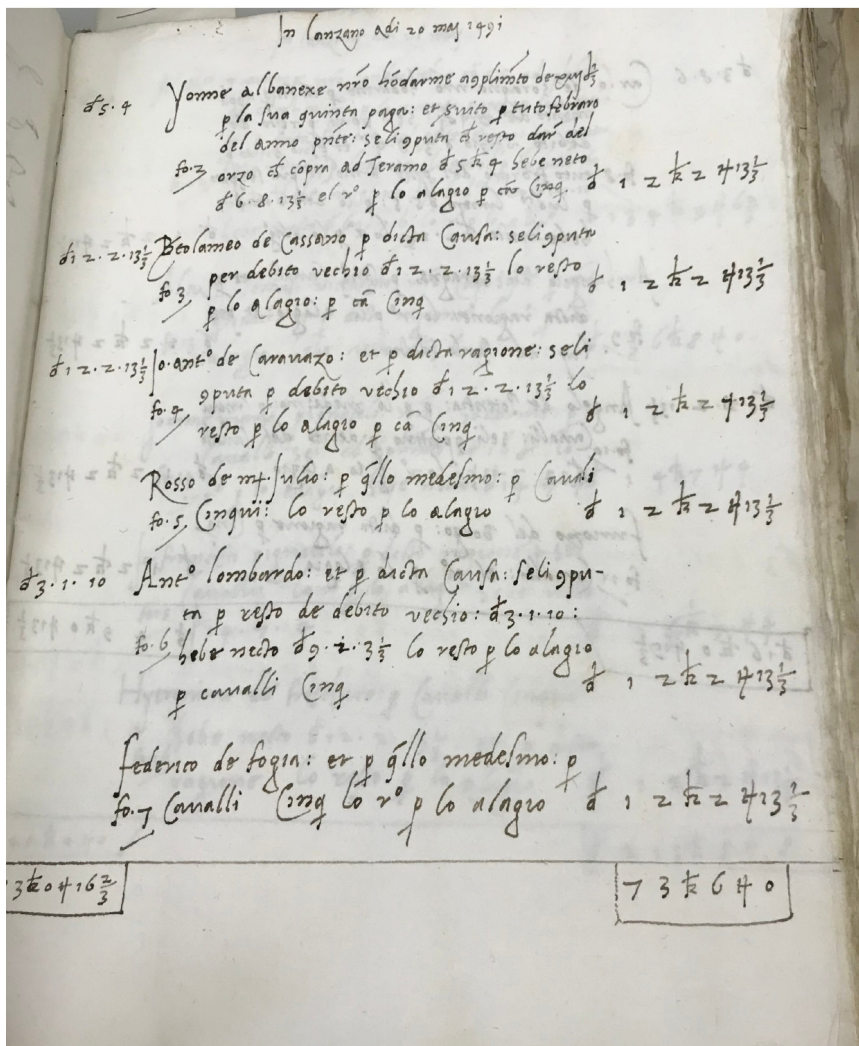 In lanzano adi 20 maj 1491
đ 5 · 4 Yonne albanexe nr̃o hõdarme a 9plimẽto de
p la sua quinta paga: et suito p tuto febraro
del anno pñte: se li 9puta resto dar̃ del
fo. 3 orzo cõpra ad Teramo đ 5 tr̃ 4 hebe neto
đ 6 · 8 · 13⅓ el r.º p lo alagio p Cinq đ 12 tr̃ 2 g 13⅓
đ 12 · 2 · 13⅓ Btolameo de Cassano p dicta Causa: se li 9puta
per debito vechio đ 12 · 2 · 13⅓ lo resto
fo. 3 p lo alagio: p cã Cinq đ 12 tr̃ 2 g 13⅓
đ 12 · 2 · 13⅓ Jo. antº de Carauazo: et p dicta ragione: se li
9puta p debito vechio đ 12 · 2 · 13⅓ lo
fo. 4 resto p lo alagio p cã Cinq đ 12 tr̃ 2 g 13⅓
Rosso de Julio: p q̃llo medesmo: p Cavali
fo. 5 Cinqui: lo resto p lo alagio đ 12 tr̃ 2 g 13⅓
đ 3 · 1 · 10 Antº lombardo: et p dicta Causa: se li 9pu-
ta p resto de debito vechio: đ 3 · 1 · 10:
fo. 6 hebe necto đ 9 · 1 · 3⅓ lo resto p lo alagio
p cavalli Cinq đ 12 tr̃ 2 g 13⅓
federico de fogia: et p q̃llo medesmo: p
fo. 7 Cavalli Cinq lo rº p lo alagio đ 12 tr̃ 2 g 13⅓
3 tr̃ 0 g 16⅔ 73 tr̃ 6 g 0